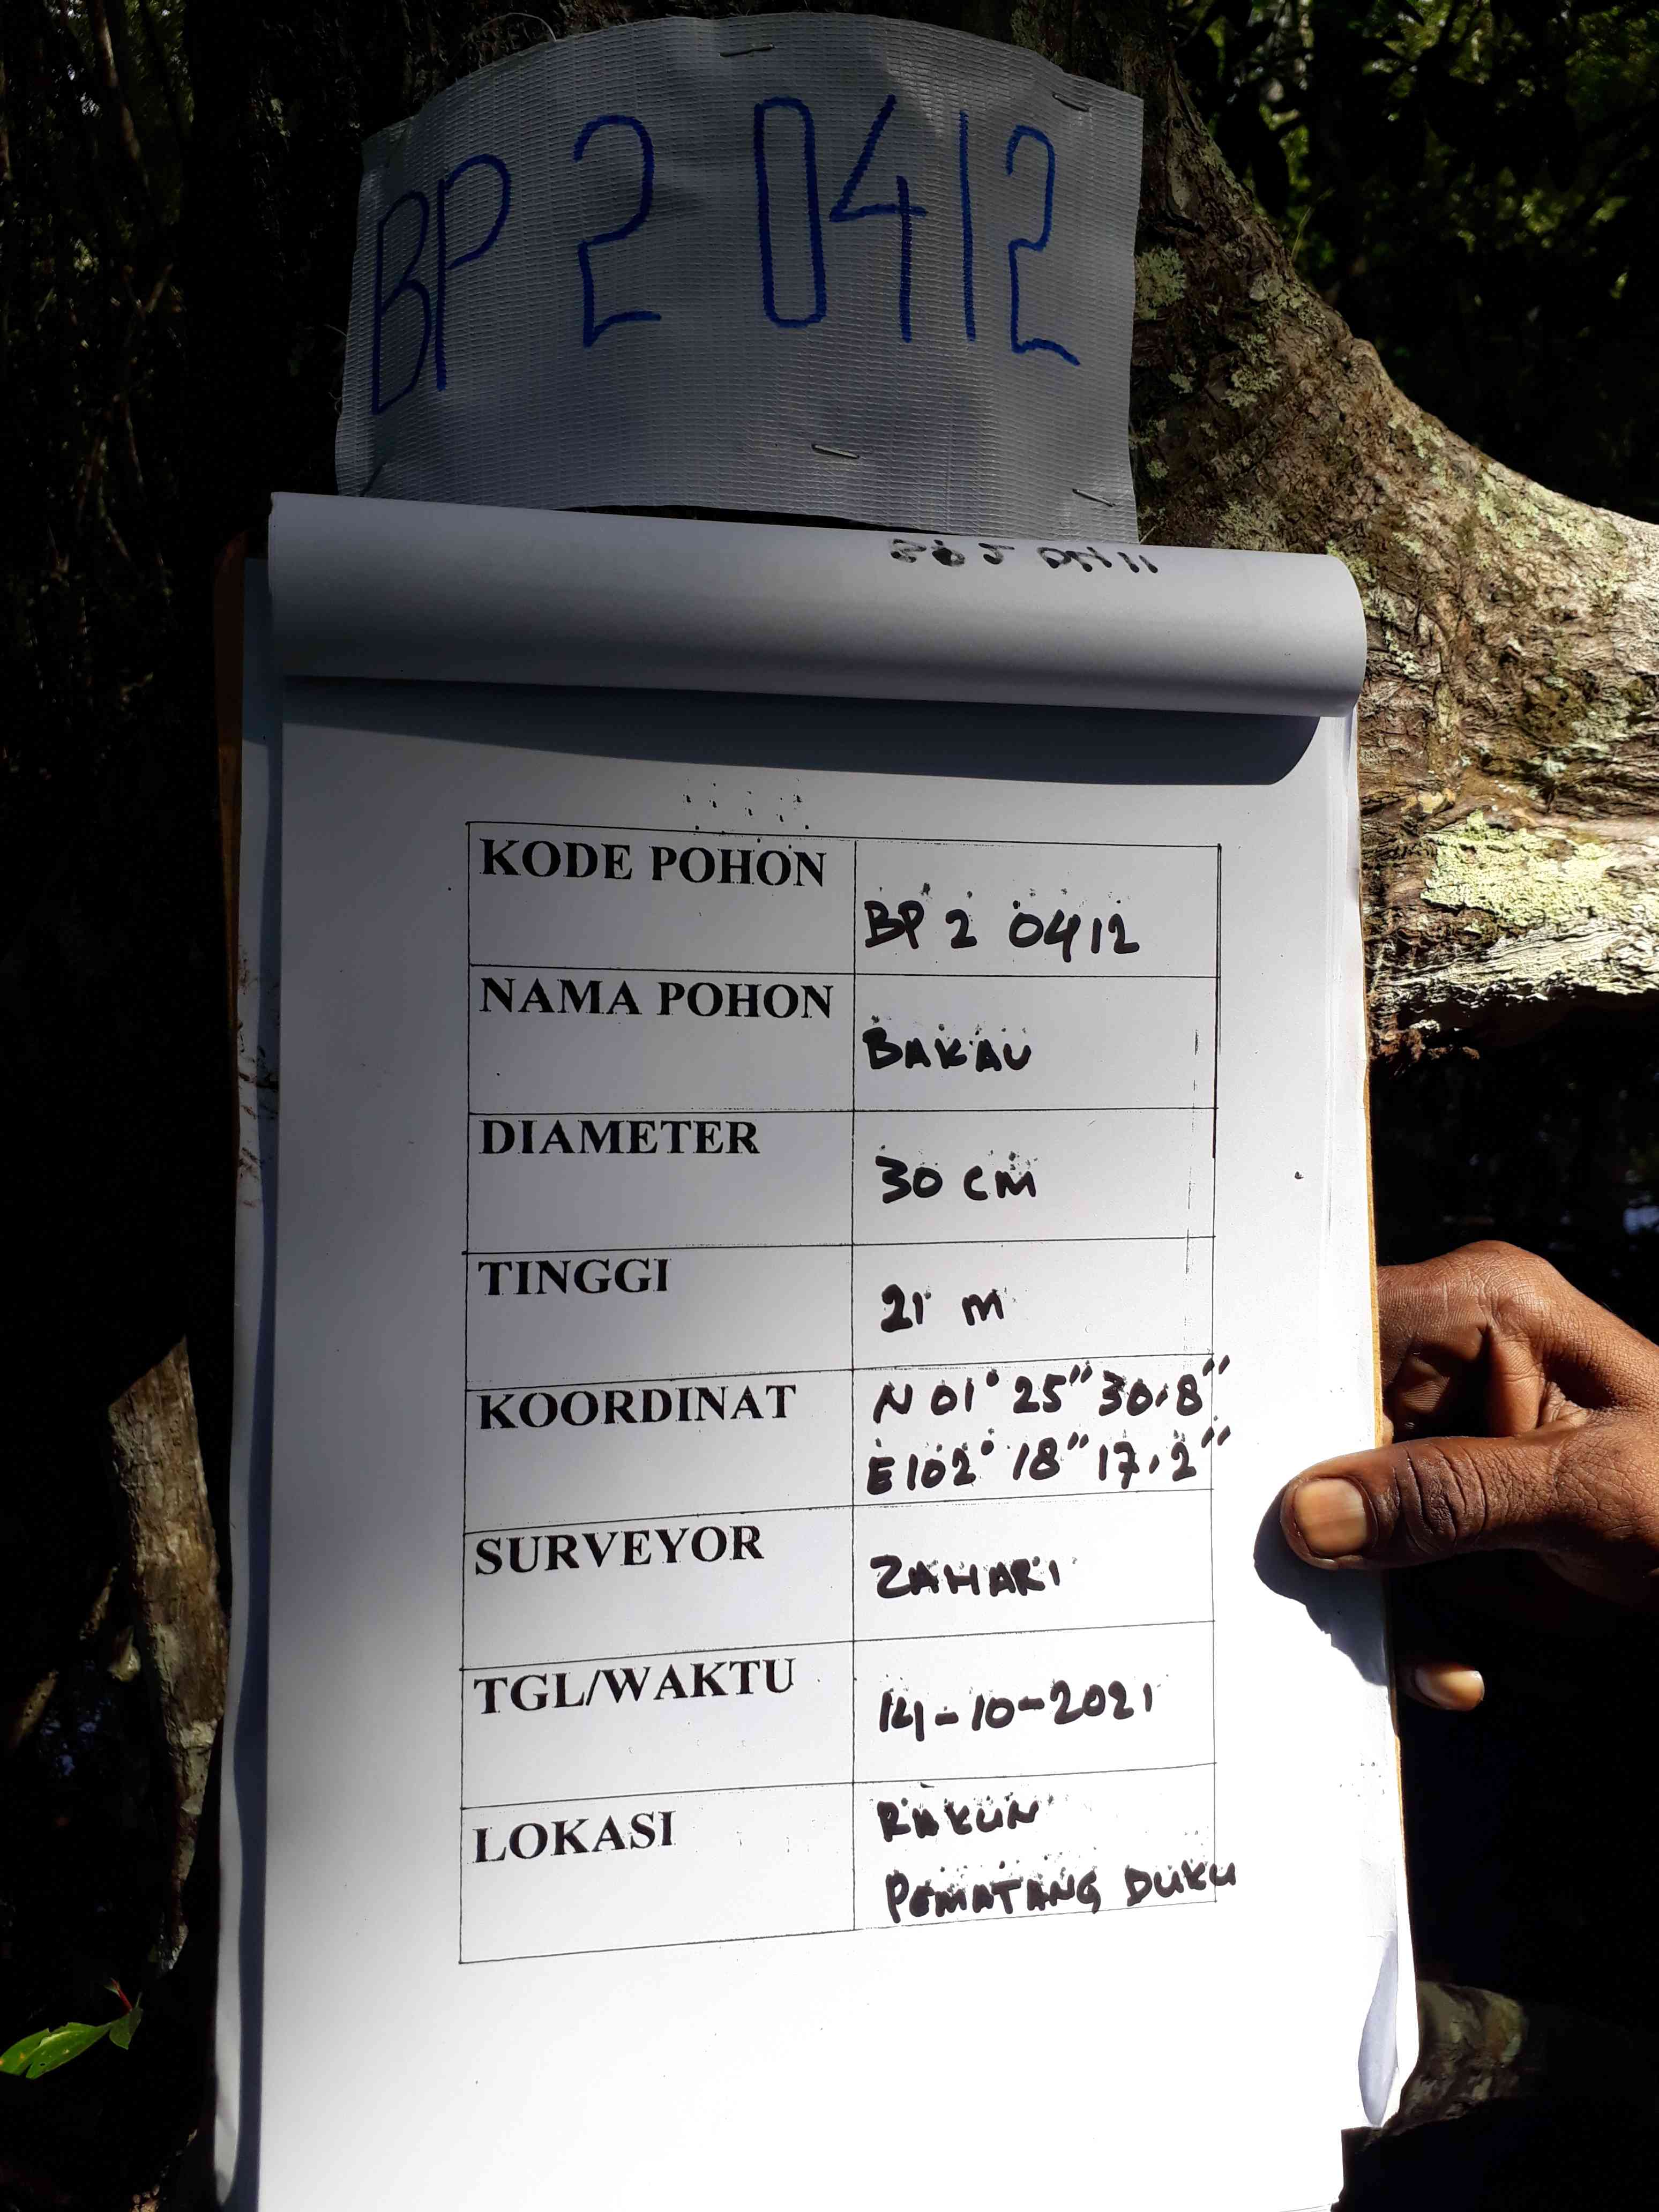 BP 2 0412
KODE POHON
BP 2 0412
NAMA POHON
BAKAU
DIAMETER
30 CM
TINGGI
21 m
KOORDINAT
N 01° 25" 30,8"
E 102° 18" 17,2"
SURVEYOR
ZAHARI
TGL/WAKTU
14-10-2021
LOKASI
RAKUN
PEMATANG DUKU